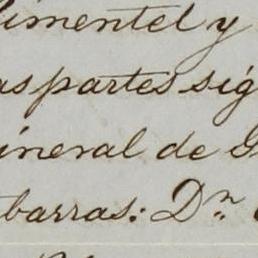 imentel y
as partes sig
ineral de G
barras: Dn